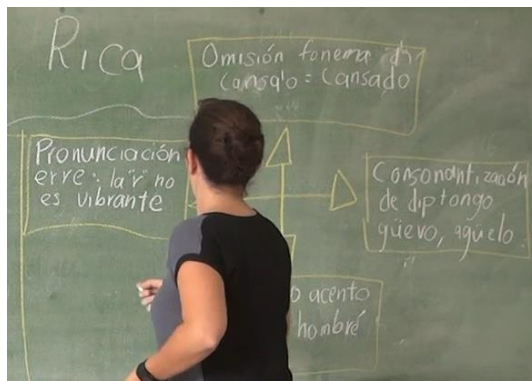 Rica
Omisión fonema d
cansa'o = cansado
Pronunciación
erre: la "r" no
es vibrante
Consonantización
de diptongo
güevo, agüelo.
o acento
hombré